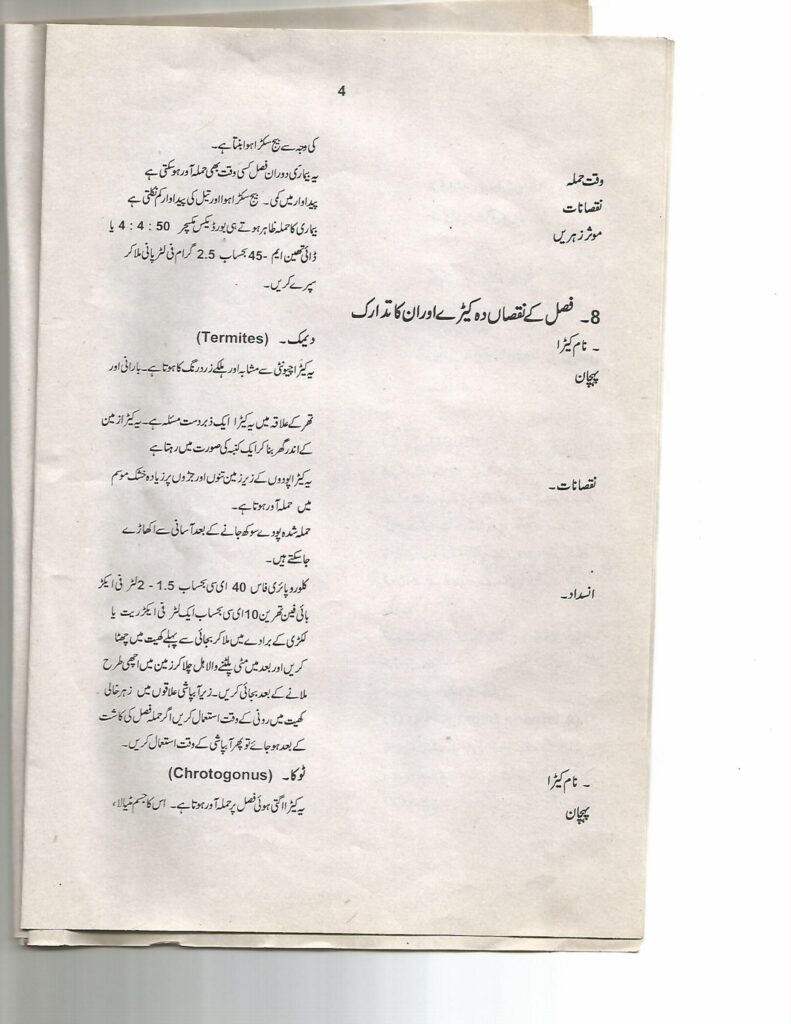 4
کی وجہ سے بیج سکڑا ہوا بنتا ہے۔
وقت حملہ یہ بیماری دوران فصل کسی وقت بھی حملہ آور ہو سکتی ہے
نقصانات پیداوار میں کمی۔ بیج سکڑا ہوا اور تیل کی پیداوار کم نکلتی ہے
موثر زہریں بیماری کا حملہ ظاہر ہوتے ہی بورڈیکس مکسچر 50 : 4 : 4 یا
ڈائی تھین ایم -45 بحساب 2.5 گرام فی لٹر پانی ملا کر
سپرے کریں۔
8۔ فصل کے نقصاں دہ کیڑے اور ان کا تدارک
۔ نام کیڑا دیمک۔ (Termites)
پہچان یہ کیڑا چیونٹی سے مشابہ اور ہلکے زرد رنگ کا ہوتا ہے۔ بارانی اور
تھر کے علاقہ میں یہ کیڑا ایک ذبردست مسئلہ ہے۔ یہ کیڑا زمین
کے اندر گھر بنا کر ایک کنبہ کی صورت میں رہتا ہے
نقصانات۔ یہ کیڑا پودوں کے زیر زمین تنوں اور جڑوں پر زیادہ خشک موسم
میں حملہ آور ہوتا ہے۔
حملہ شدہ پودے سوکھ جانے کے بعد آسانی سے اکھاڑے
جا سکتے ہیں۔
انسداد۔ کلوروپائری فاس 40 ای سی بحساب 1.5 - 2 لٹر فی ایکڑ
بائی فین تھرین 10 ای سی بحساب ایک لٹر فی ایکڑ ریت یا
لکڑی کے برادے میں ملا کر بجائی سے پہلے کھیت میں چھٹا
کریں اور بعد میں مٹی پلٹنے والا ہل چلا کر زمین میں اچھی طرح
ملانے کے بعد بجائی کریں۔ زیر آبپاشی علاقوں میں زہر خالی
کھیت میں رونی کے وقت استعمال کریں اگر حملہ فصل کی کاشت
کے بعد ہو جائے تو پھر آبپاشی کے وقت استعمال کریں۔
۔ نام کیڑا ٹوکا۔ (Chrotogonus)
پہچان یہ کیڑا اگتی ہوئی فصل پر حملہ آور ہوتا ہے۔ اس کا جسم مٹیالا،